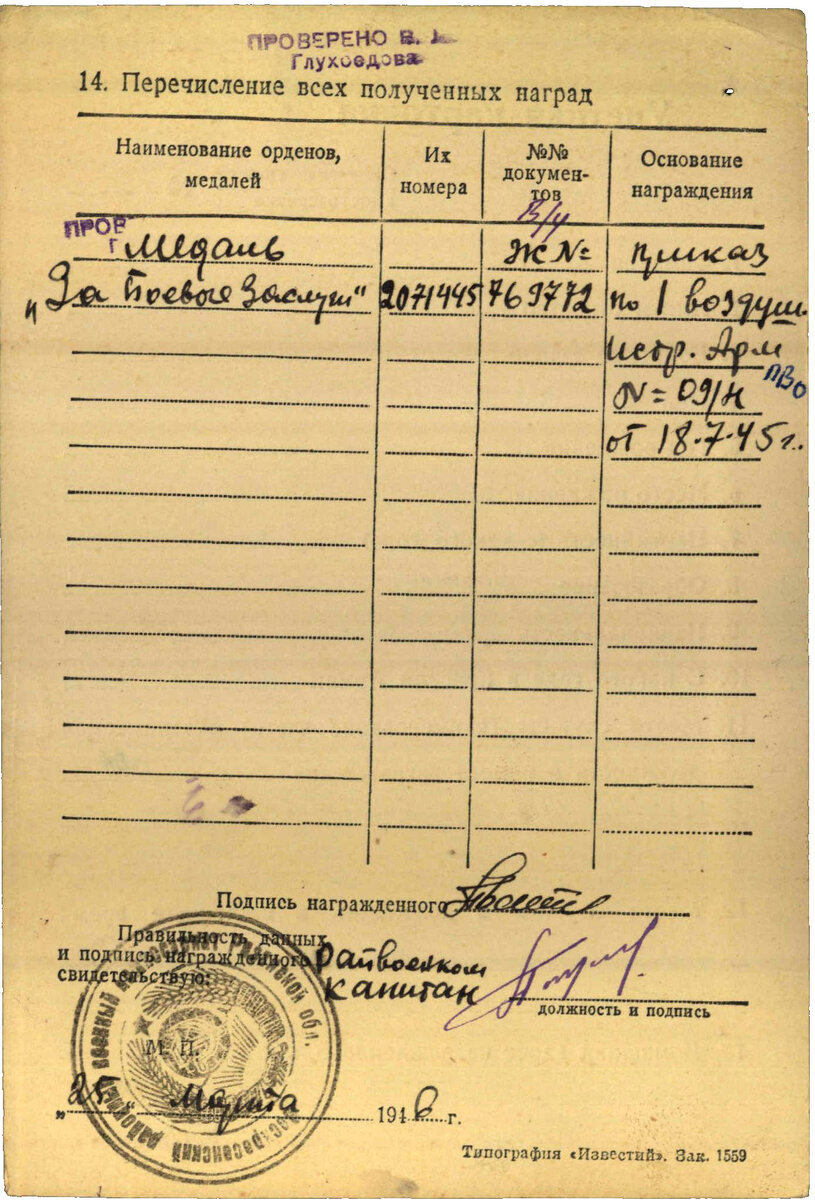 ПРОВЕРЕНО В.
Глухоедова
14. Перечисление всех полученных наград
Наименование орденов, медалей
Их номера
№№ документов
Основание награждения
В/у
ПРОВ
Г
Медаль
Ж №
приказ
„За Боевые Заслуги“
2071445
769772
по 1 воздуш.
истр. Арм
ПВО
N= 09/н
от 18.7.45 г.
Подпись награжденного
Правильность данных
и подпись награжденного
свидетельствую:
Райвоенком
Капитан
должность и подпись
М. П.
районный военный комиссариат
обл.
„25“ Марта 1946 г.
Типография «Известий». Зак. 1559